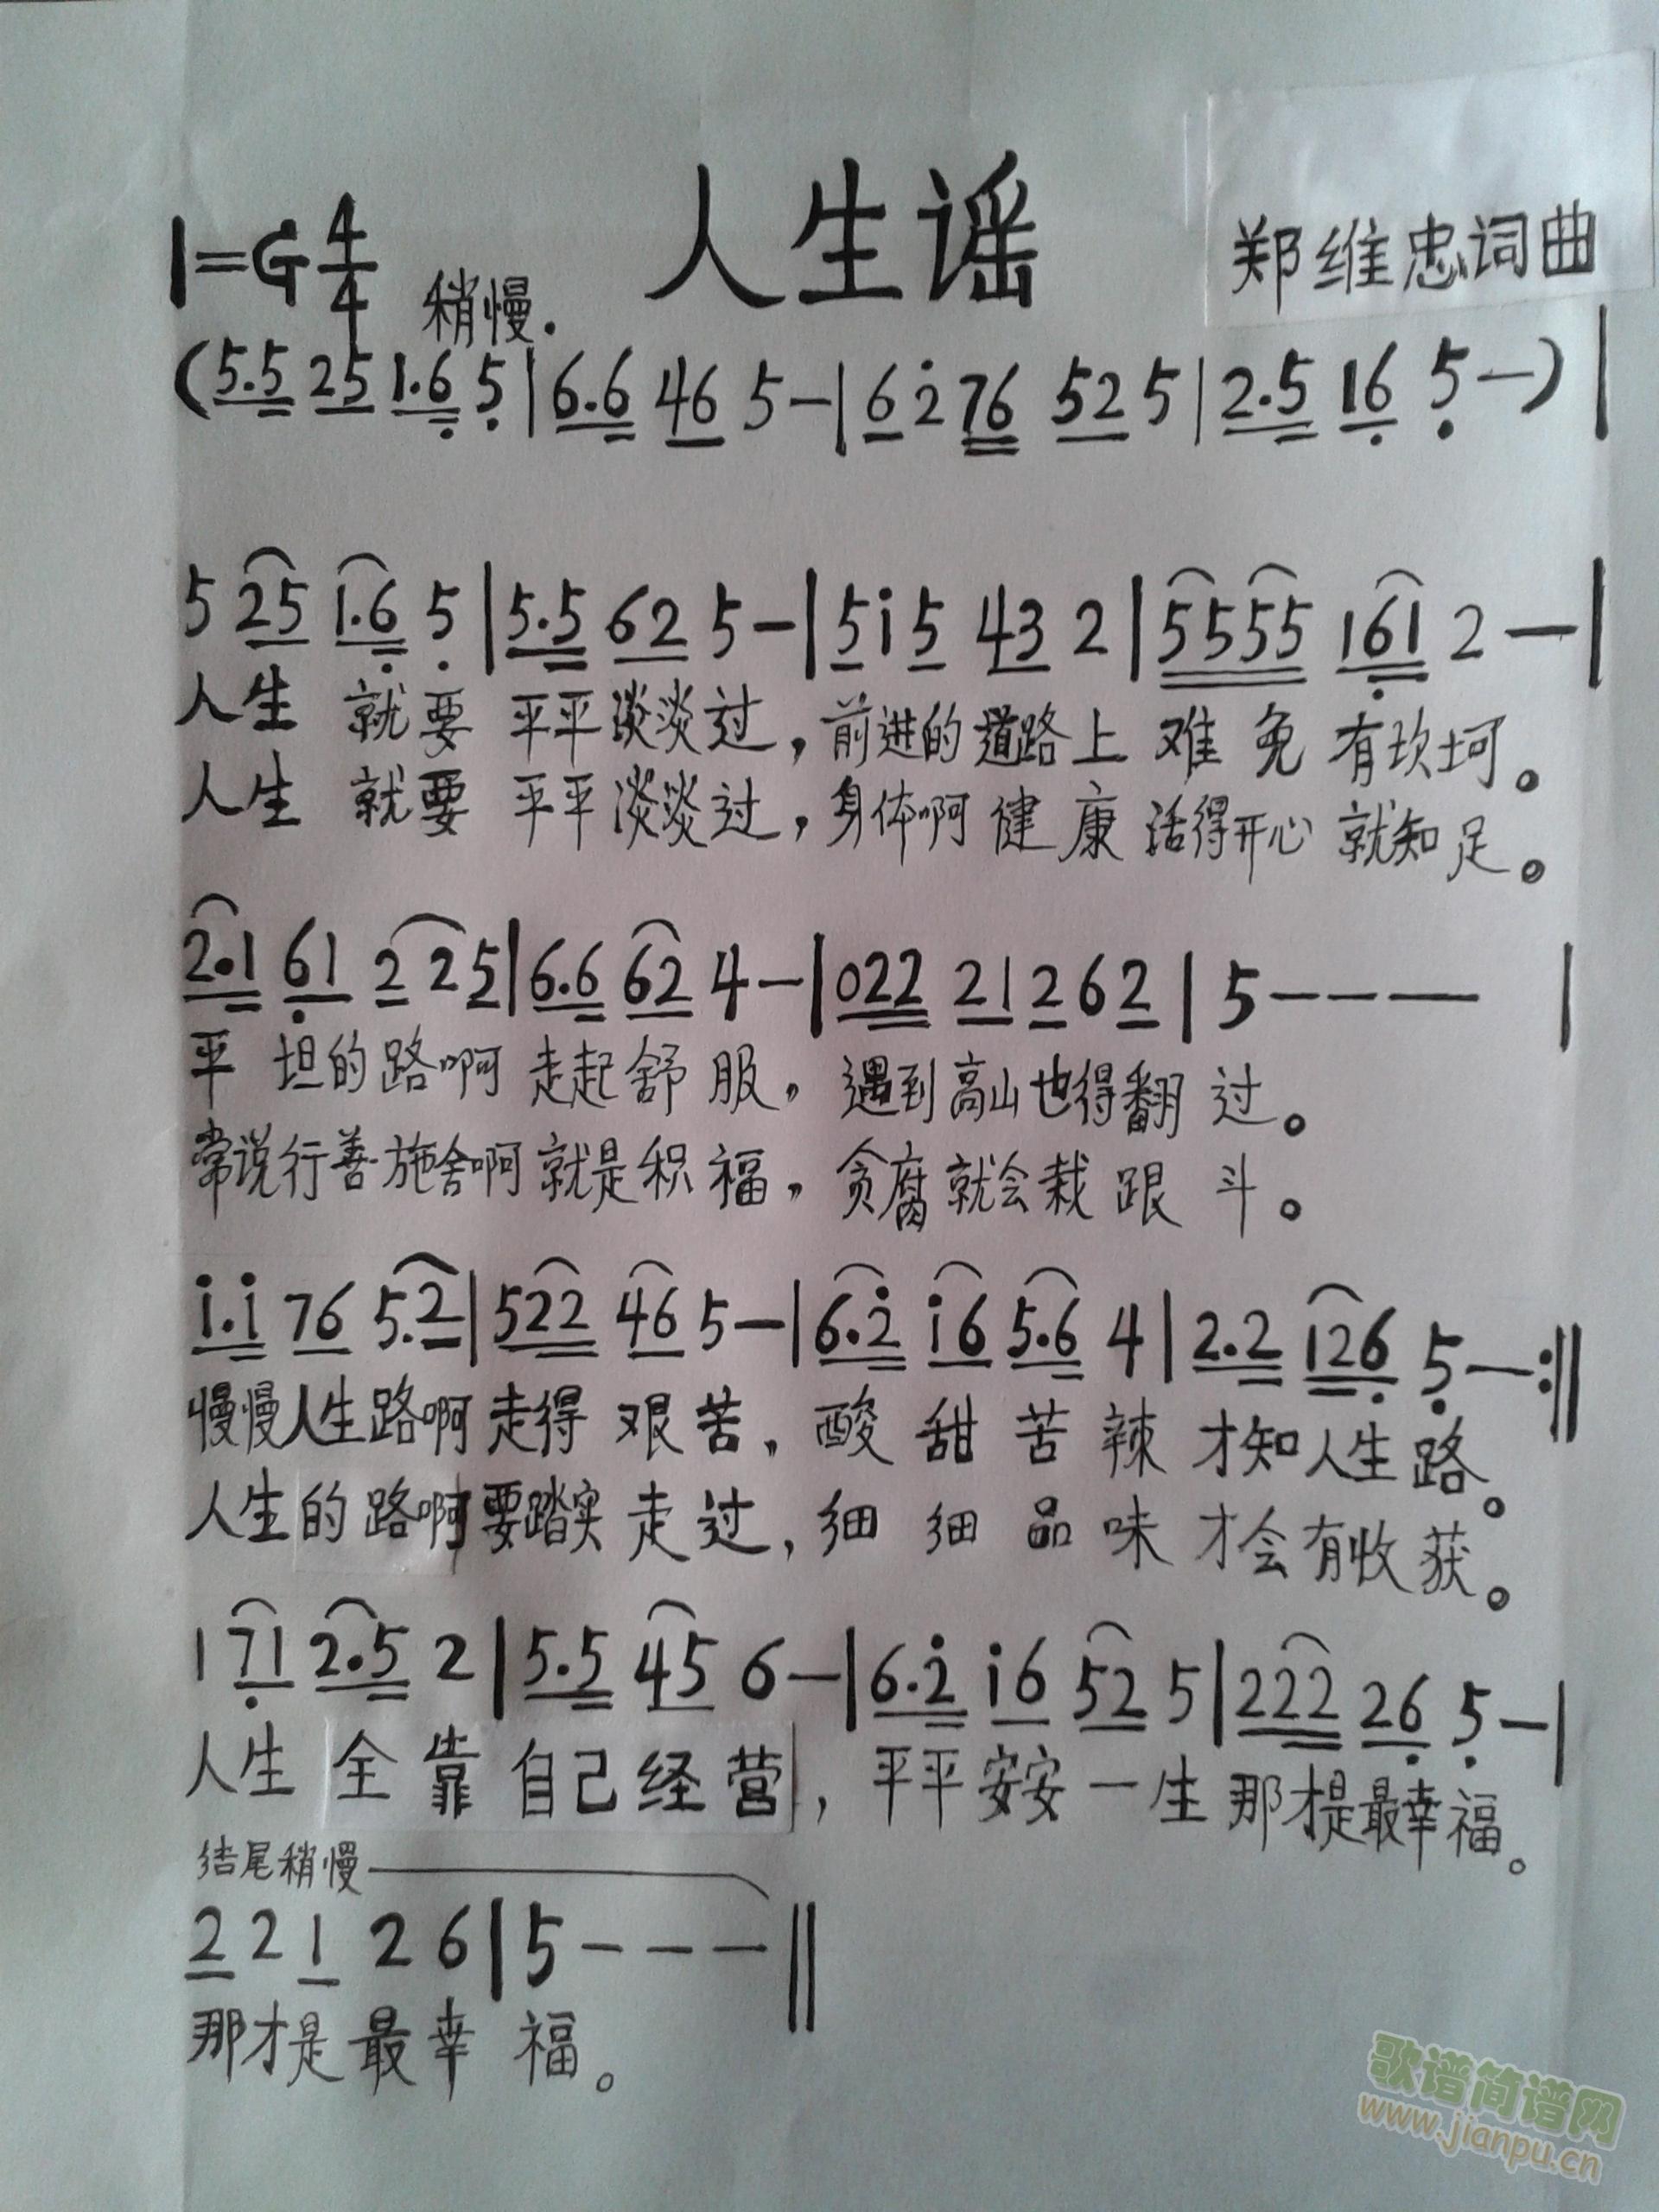 人生谣
1=G 4/4 稍慢.
郑维忠词曲
(5.5 25 1.6 5|6.6 46 5-|6 2 76 52 5|2.5 16 5-)|
5 25 1.6 5|5.5 62 5-|5 i 5 43 2|5555 161 2-|
人生 就要 平平淡淡过,前进的道路上 难免有坎坷。
人生 就要 平平淡淡过,身体啊健康活得开心就知足。
2.1 61 2 2 5|6.6 62 4-|022 21 2 6 2|5---|
平坦的路啊走起舒服,遇到高山也得翻过。
常说行善施舍啊就是积福,贪腐就会栽跟斗。
i.i 76 5.2|522 46 5-|6.2 i6 5.6 4|2.2 126 5-:||
慢慢人生路啊走得艰苦,酸甜苦辣才知人生路。
人生的路啊要踏实走过,细细品味才会有收获。
1 71 2.5 2|5.5 45 6-|6.2 i6 52 5|222 26 5-|
人生全靠自己经营,平平安安一生那才是最幸福。
结尾稍慢
2 2 1 2 6|5---||
那才是最幸福。
歌谱简谱网
www.jianpu.cn